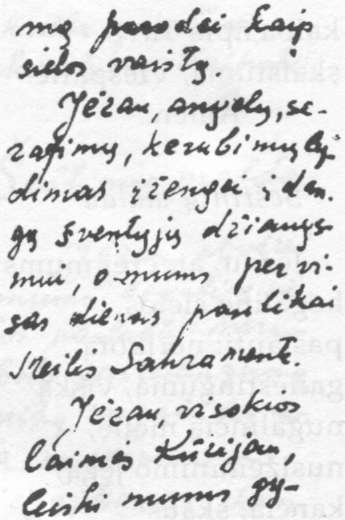 mę parodei kaip
sielos vaistą.
Jėzau, angelų, se-
rafimų, kerubimų ly-
dimas įžengei i dan-
gų šventųjų džiaugs-
mui, o mums per vi-
sas dienas palikai
Meilės Sakramentą.
Jėzau, visokios
laimės Kūrėjau,
leiski mums gy-